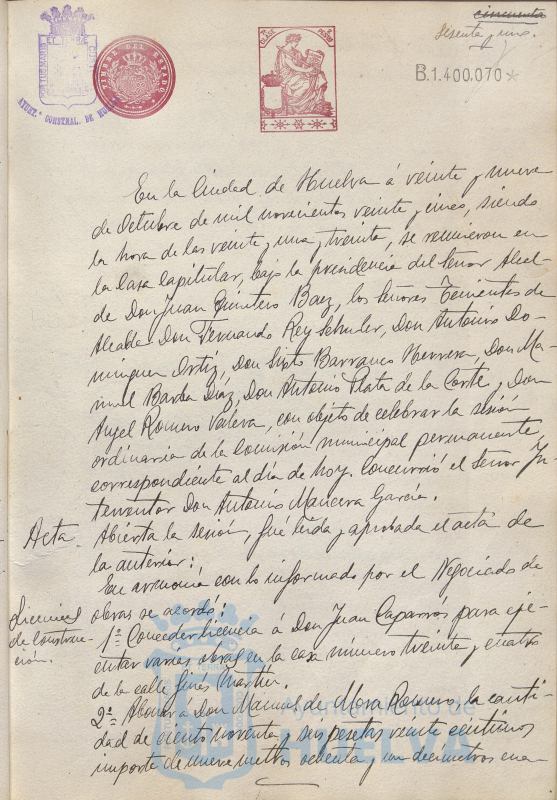 cincuenta
sesenta y uno.
B.1.400.070
AYUNT.º CONSTNAL. DE HUELVA
TIMBRE DEL ESTADO
En la Ciudad de Huelva á veinte y nueve
de Octubre de mil novecientos veinte y cinco, siendo
la hora de las veinte y una y treinta, se reunieron en
la Casa Capitular, bajo la presidencia del Señor Alcal-
de Don Juan Quintero Baez, los señores Tenientes de
Alcalde Don Fernando Rey Schuler, Don Antonio Do-
minguez Ortiz, Don Sixto Barranco Herrera, Don Ma-
nuel Barba Diaz, Don Antonio Plata de la Corte y Don
Angel Romero Valera, con objeto de celebrar la sesión
ordinaria de la Comisión municipal permanente,
correspondiente al día de hoy. Concurrió el Señor In-
terventor Don Antonio Mancera García.
Acta Abierta la sesión, fué leída y aprobada el acta de
la anterior:
En armonía con lo informado por el Negociado de
Licencias
de Construc-
ción.
obras se acordó:
1º Conceder licencia á Don Juan Caparrós para eje-
cutar varias obras en la casa número treinta y cuatro
de la calle Ginés Martín.
2º Abonar a Don Manuel de Mora Romero, la canti-
dad de ciento noventa y seis pesetas veinte céntimos
importe de nueve metros ochenta y un decímetros cua-
Ayuntamiento de
HUELVA